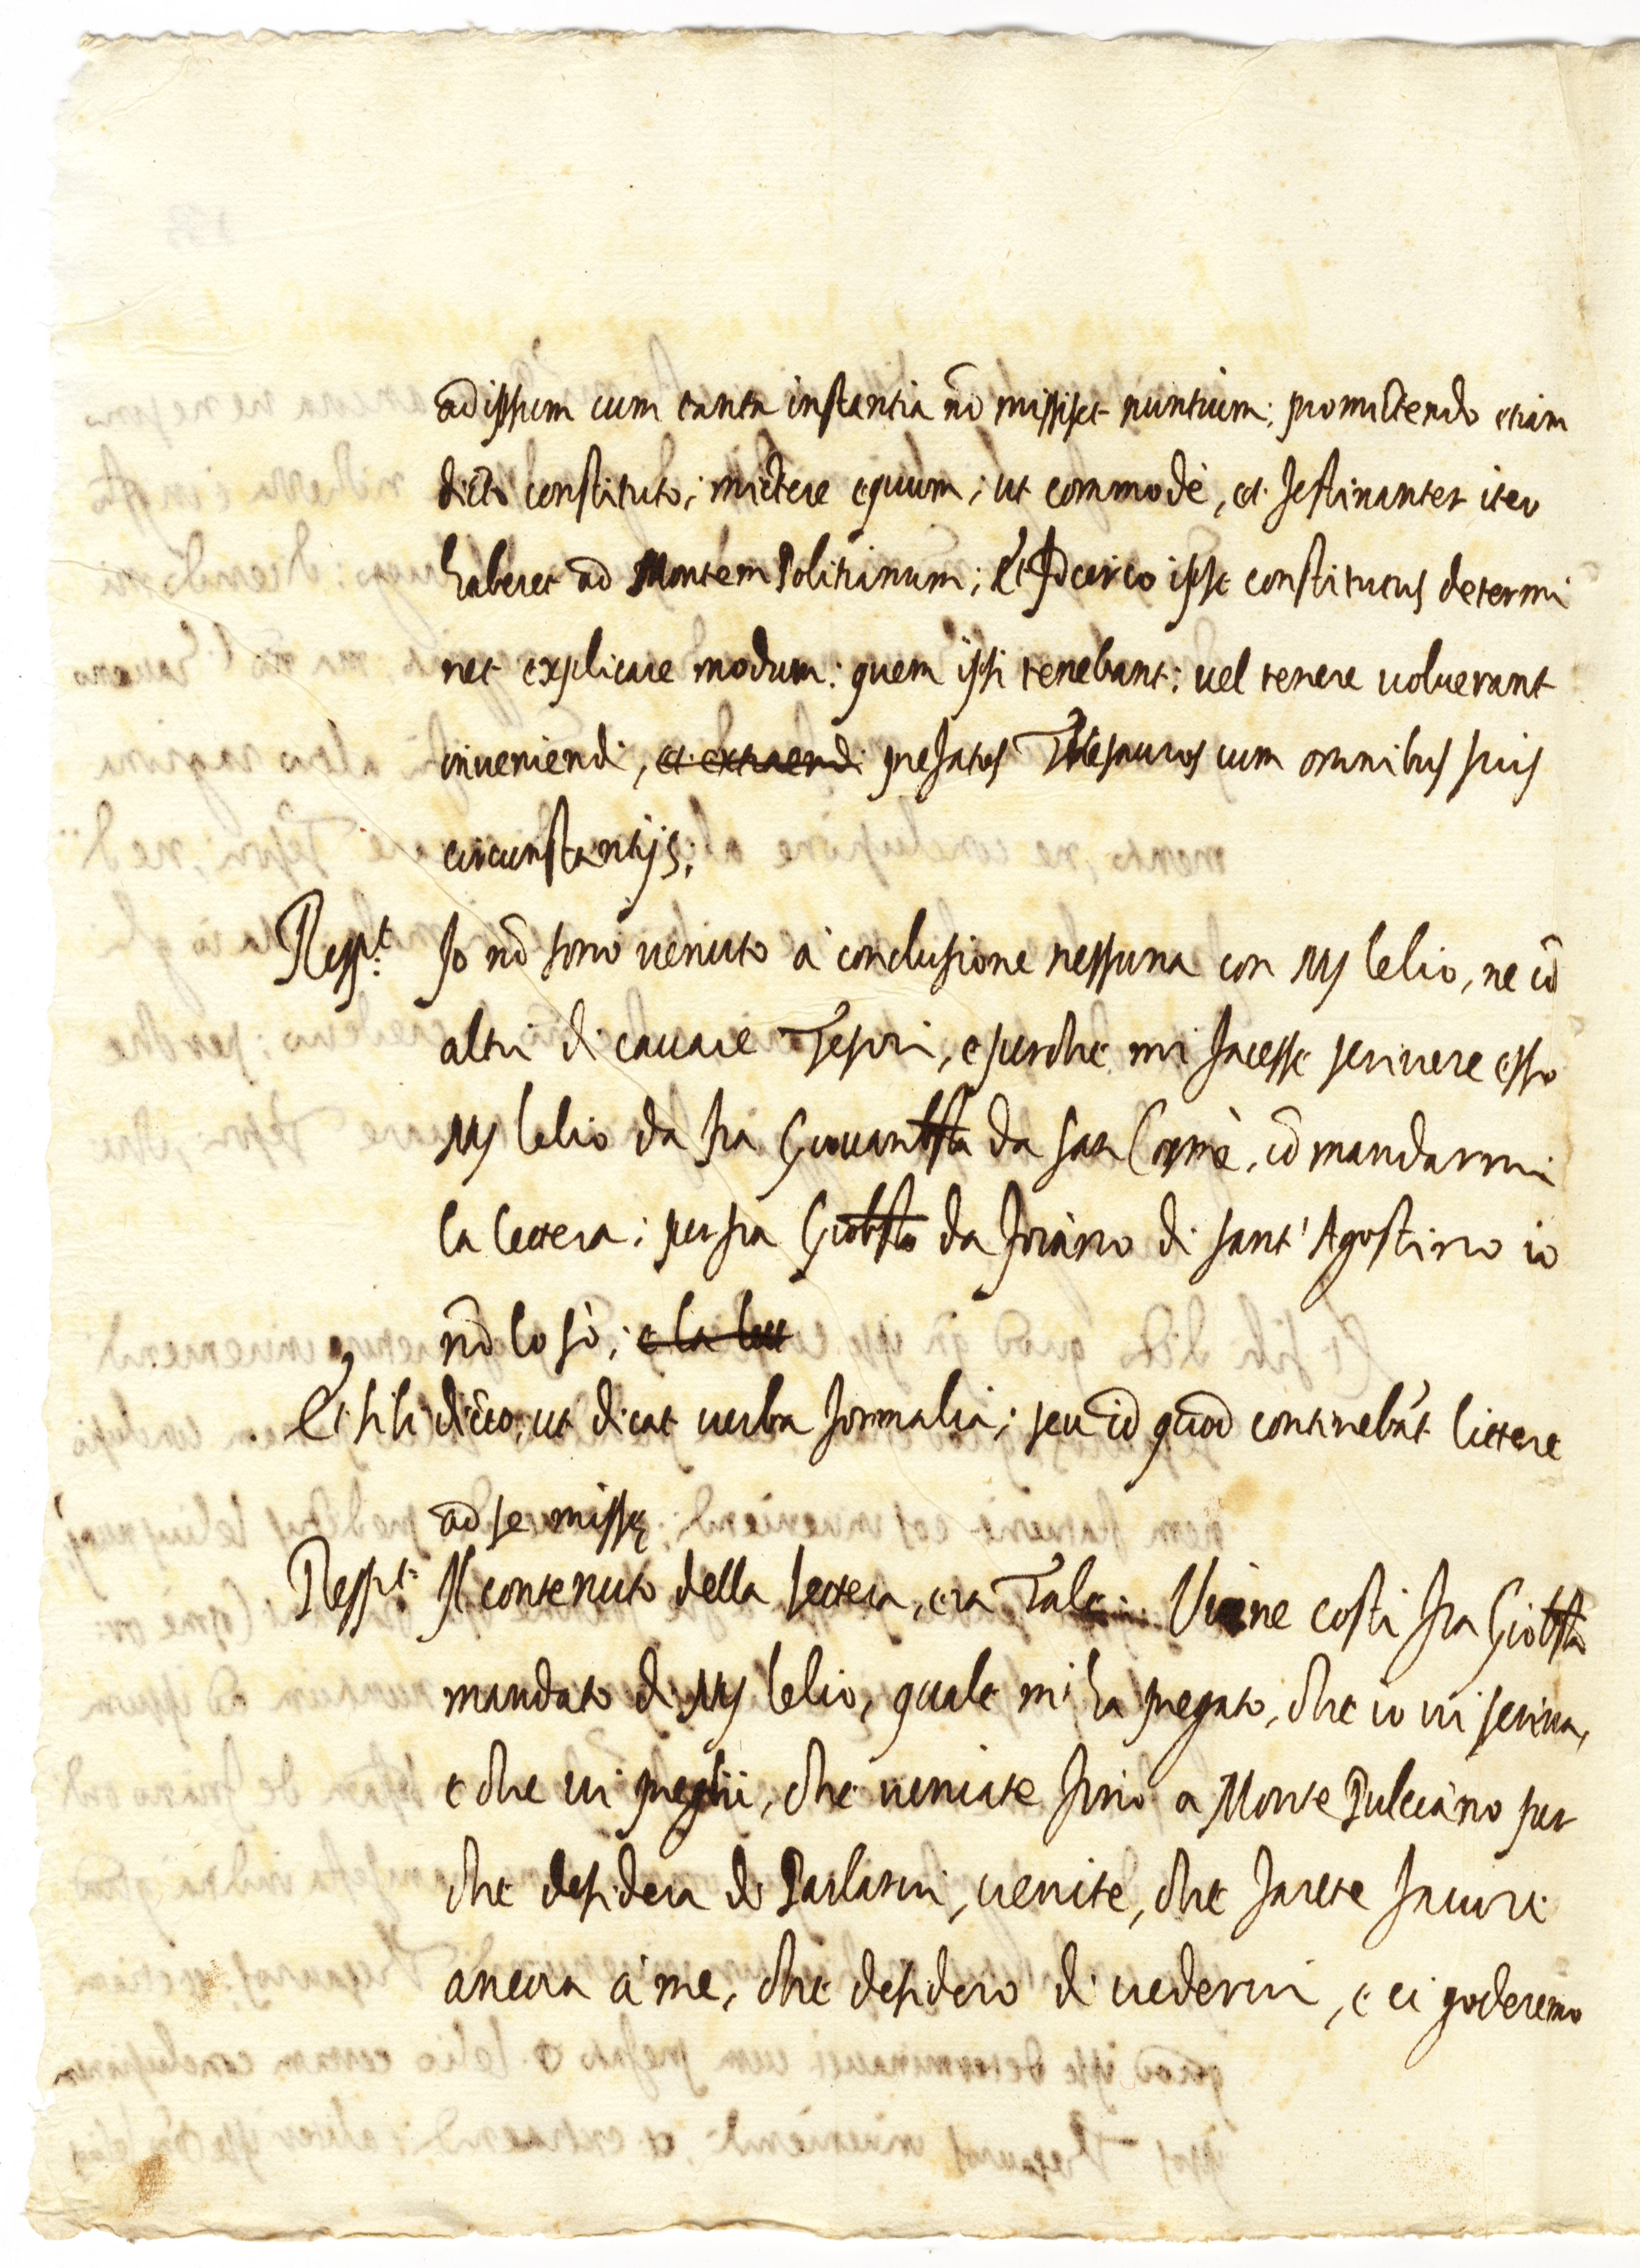 ad ipsum cum tanta instantia nō misisset nuntium; promictendo etiam
dicto constituto; mictere equum; ut commodè, et festinanter iter
haberet ad Montem Politianum; Et Idcirco ipse constitutus determi
net explicare modum: quem ipsi tenebant: uel tenere uoluerant
inueniendi, et extraendi prefatos Thesauros cum omnibus suis
circunstantijs;
Resp.t Io nō sono uenuto à conclusione nessuna con ms lelio, ne cō
altri di cauare Tesori, e perche mi facesse scriuere esso
ms lelio da fra Giouanbtta da san Cosmè, cō mandarmi
la lettera; per fra Giobtta da foiano di sant' Agostino io
nō lo sò; e la lett
Et sibi dicto, ut dicat uerba formalia; seu id quod continebāt littere
ad se missę
Resp.t Il contenuto della lettera, era Tale: Viene costi fra Giobtta
mandato di ms lelio, quale mi ha pregato, che io ui scriua,
e che ui preghi, che ueniate fino a Monte Pulciano per
che desidera di Parlarui, uenite, che farete fauore
ancora à me, che desidero di uederui, e ci goderemo